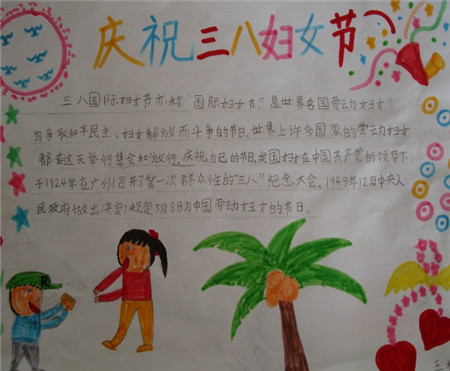 庆祝三八妇女节
三八国际妇女节亦称“国际妇女节”是世界各国劳动妇女
为争取和平民主、妇女解放而斗争的节日,世界上许多国家的劳动妇女
都在这天举行集会和游行,庆祝自己的节日,我国妇女在中国共产党的领导下,
于1924年在广州召开了第一次群众性的“三八”纪念大会。1949年12月中央人
民政府做出决定:规定3月8日为中国劳动妇女的节日。
三